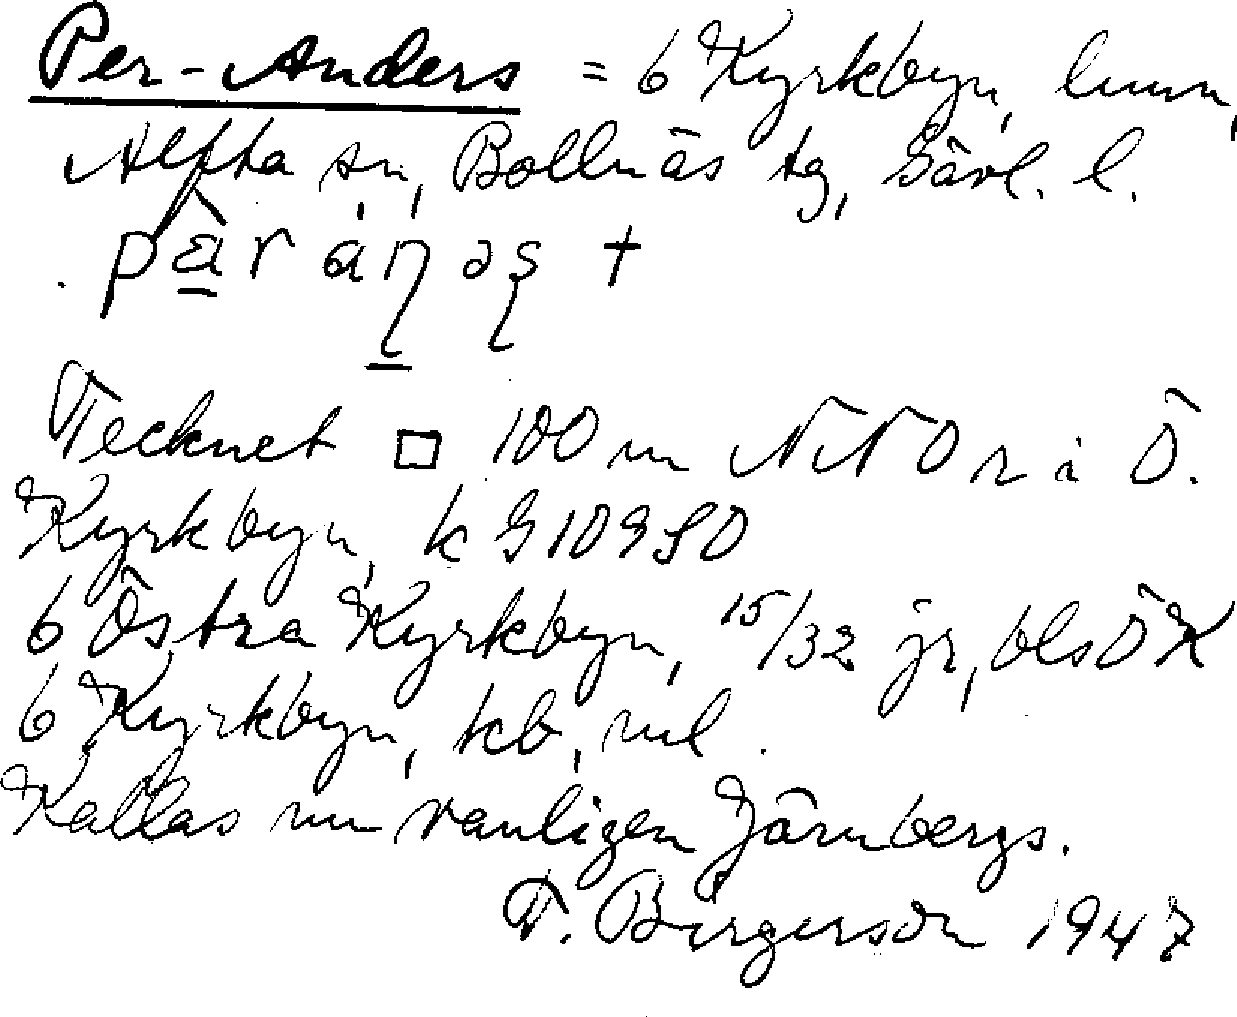 Per-Anders = 6 Kyrkbyn,
Alfta sn, Bollnäs tg, Gävl. l.
Tecknet □ 100 m NNO r i Ö.
Kyrkbyn, k G10950
6 Östra Kyrkbyn, 15/32 jr, bls ÖK
6 Kyrkbyn, kb,
Kallas nu vanligen Järnbergs.
T. Birgerson 1947